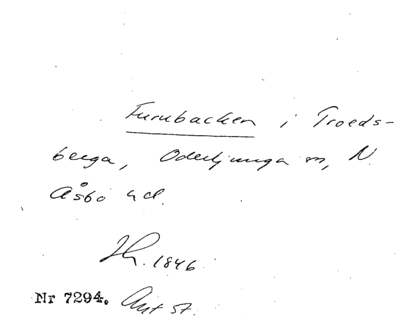 Furubacken i Troeds-
berga, Oderljunga sn, N.
Åsbo hd.
Hr. 1846
Nr 7294. Ant st.